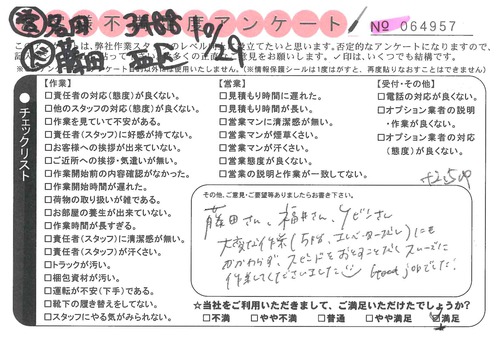 不満足度アンケート
No 064957
10/29
このアンケートは、弊社作業スタッフのレベル向上に役立てたいと思います。否定的なアンケートになりますので、
ご意見をお願いします。✓印は、いくつでも結構です。
以外は使用いたしません。(※情報保護シールは1度がすと、再度貼りなおすことはできません)
チェックリスト
【作業】
□責任者の対応(態度)が良くない。
□他のスタッフの対応(態度)が良くない。
□作業を見ていて不安がある。
□責任者(スタッフ)に好感が持てない。
□お客様への挨拶が出来ていない。
□ご近所への挨拶・気遣いが無い。
□作業開始前の内容確認がなかった。
□作業開始時間が遅れた。
□荷物の取り扱いが雑である。
□お部屋の養生が出来ていない。
□作業時間が長すぎる。
□責任者(スタッフ)に清潔感が無い。
□責任者(スタッフ)が汗くさい。
□トラックが汚い。
□梱包資材が汚い。
□運転が不安(下手)である。
□靴下の履き替えをしてない。
□スタッフにやる気がみられない。
【営業】
□見積もり時間に遅れた。
□見積もり時間が長い。
□営業マンに清潔感が無い。
□営業マンが煙草くさい。
□営業マンが汗くさい。
□営業態度が良くない。
□営業の説明と作業が一致してない。
【受付・その他】
□電話の対応が良くない。
□オプション業者の説明
・作業が良くない。
□オプション業者の対応
(態度)が良くない。
その他、ご意見・ご要望等ありましたらお書き下さい。
藤田さん、福井さん、イビンさん
大変な作業(5階、エレベーターなし)にも
かかわらず、スピードをおとすことなくスムーズに
作業してくださいました😊 Good jobでした!
☆当社をご利用いただきまして、ご満足いただけたでしょうか?
□不満 □やや不満 □普通 □やや満足 ☑満足